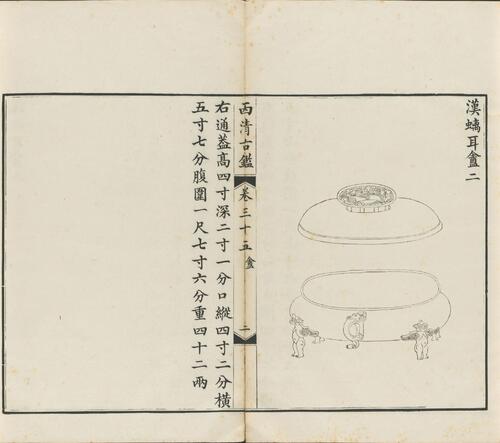 漢螭耳奩二
西清古鑑 卷三十五 奩 二
右通葢高四寸深二寸一分口縱四寸二分橫
五寸七分腹圍一尺七寸六分重四十二兩